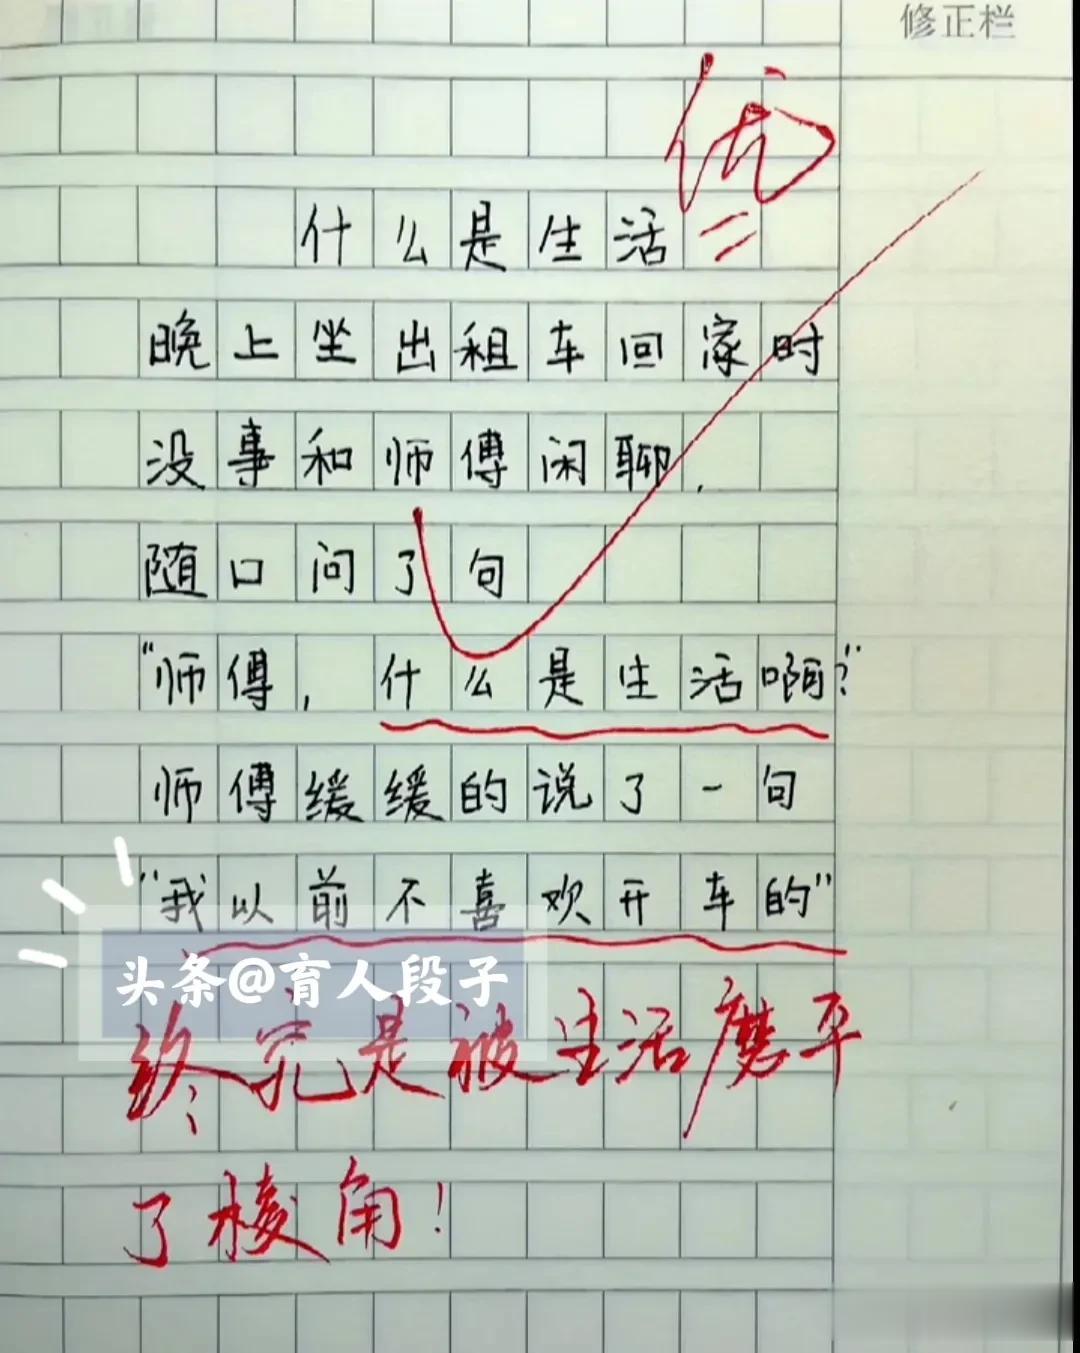 修正栏
优
什么是生活
晚上坐出租车回家时
没事和师傅闲聊,
随口问了句
“师傅,什么是生活啊?”
师傅缓缓的说了一句
“我以前不喜欢开车的”
头条@育人段子
终究是被生活磨平
了棱角!